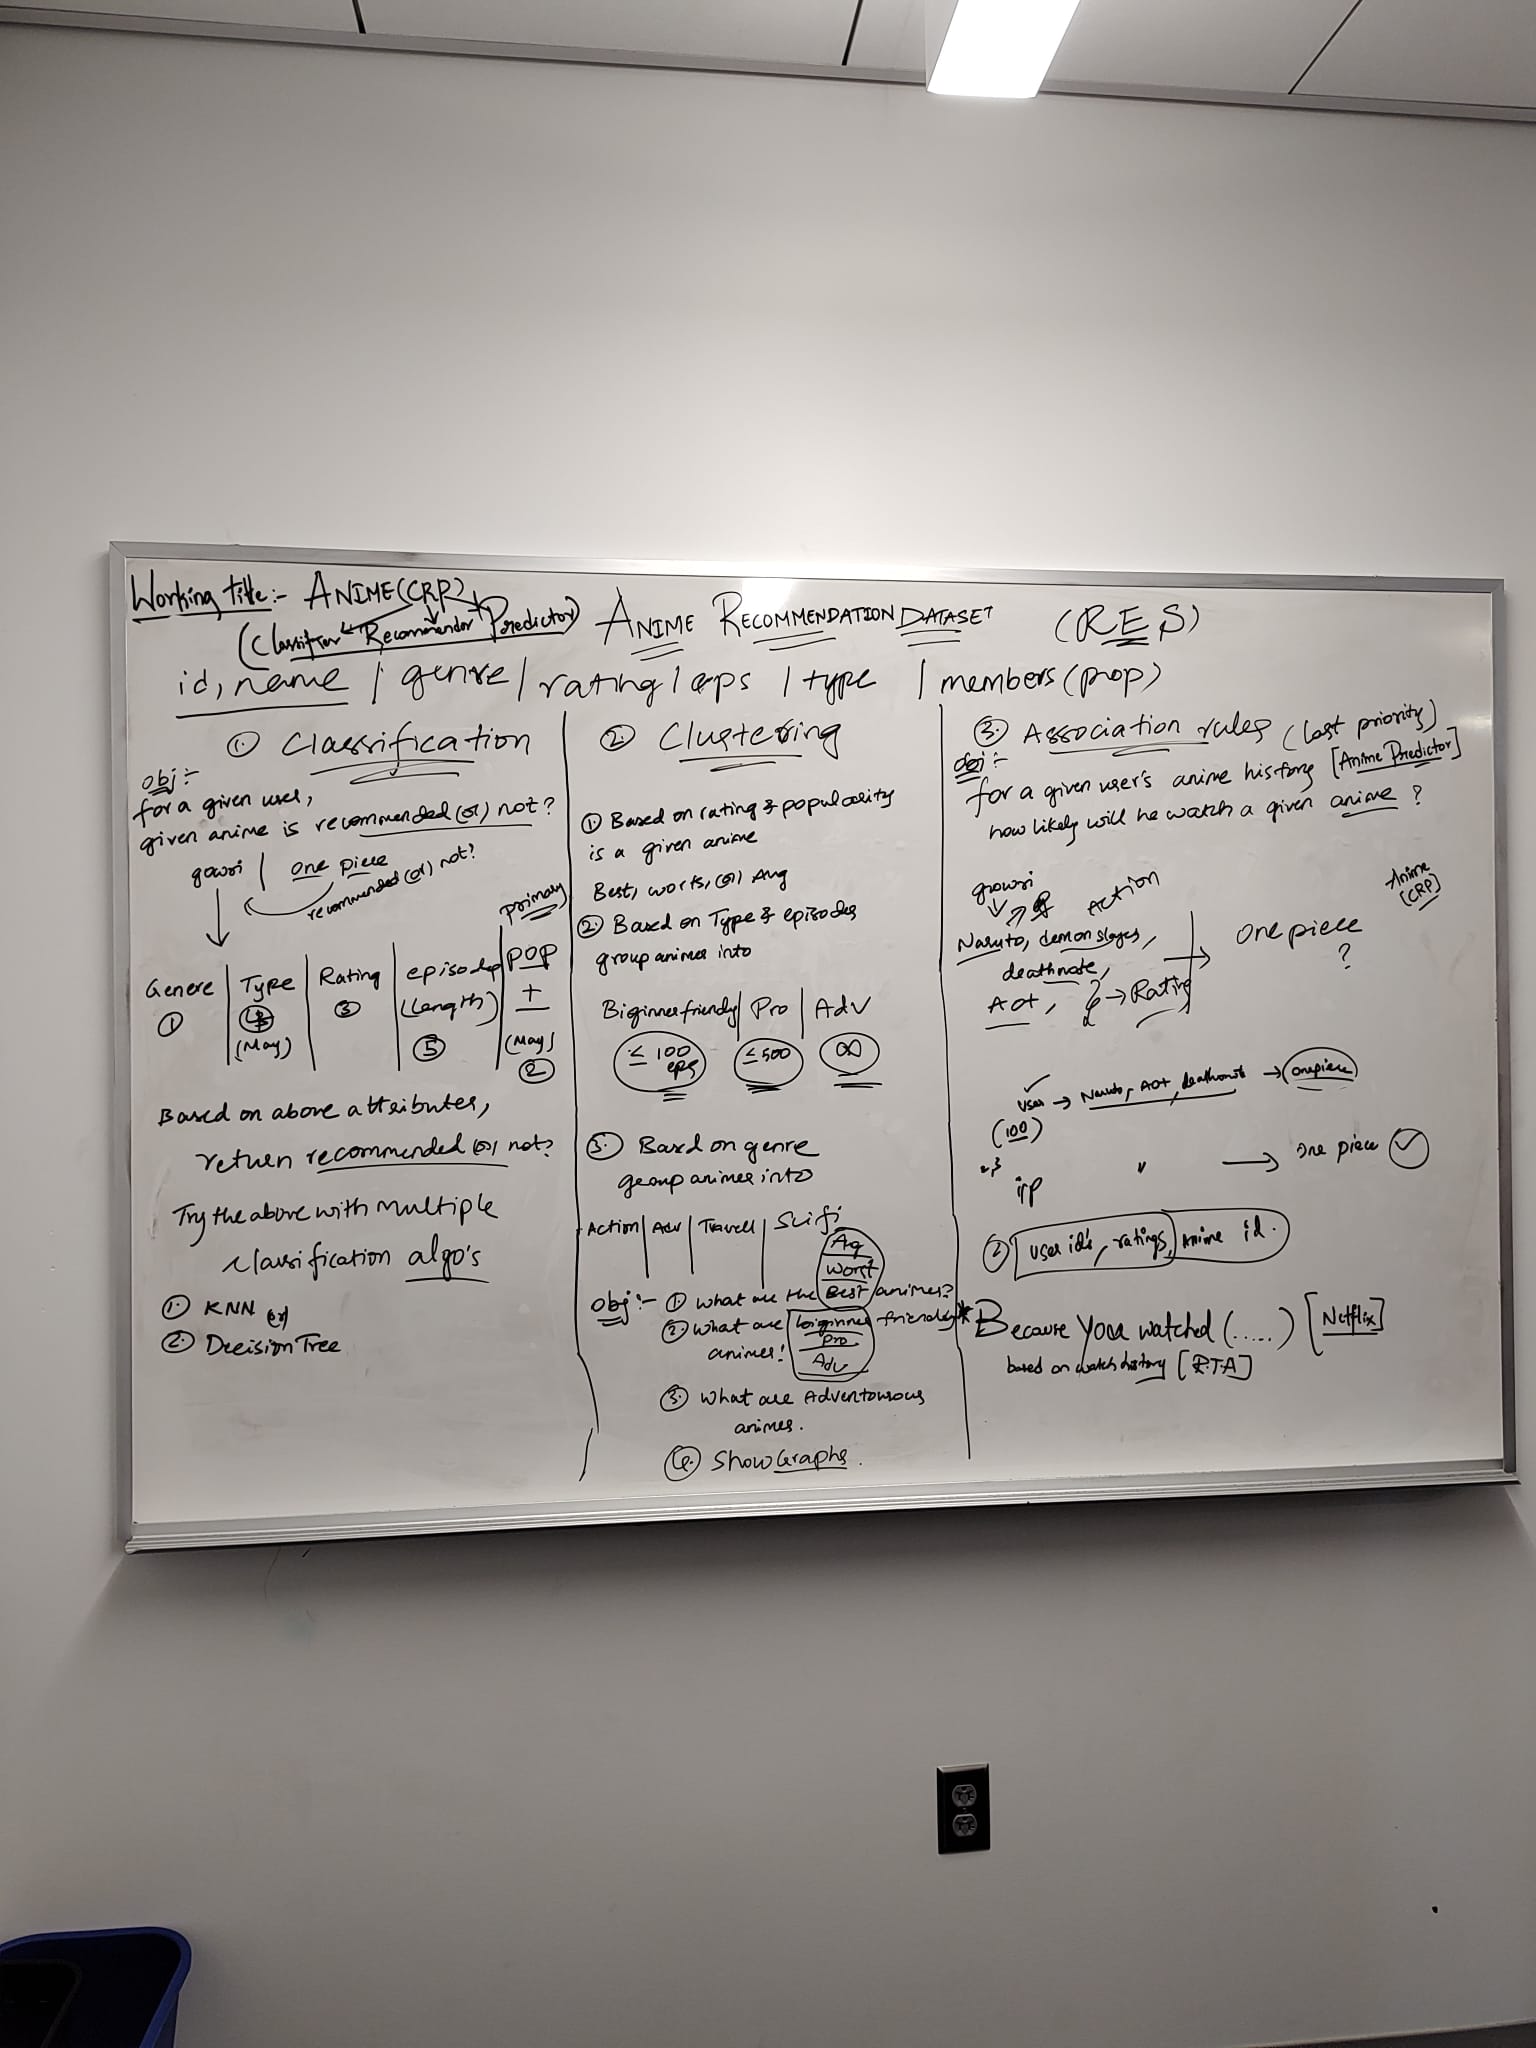 Working title:- ANIME(CRP)
(Classifier Recommender Predictor)
ANIME RECOMMENDATION DATASET (R.E.S)
id, name / genre / rating / eps / type / members (pop)
① Classification
obj:-
for a given user,
given anime is recommended (or) not?
gowri | one piece
recommended (or) not?
primary
Genere | Type | Rating | episodes | POP
(Length) +
① ③ (May)
(May) ⑤ ②
Based on above attributes,
return recommended (or) not?
Try the above with multiple
classification algo's
① KNN (or)
② Decision Tree
② Clustering
① Based on rating & popularity
is a given anime
Best, worts, (or) Avg
② Based on Type & episodes
group animes into
Biginner friendly | Pro | Adv
≤ 100 eps ≤ 500 ∞
③ Based on genre
group animes into
Action | Adv | Travell | Scifi
Avg
Worst
obj:- ① What are the Best animes?
② What are biginner friendly
animes! Pro
Adv
③ What are Adventourous
animes.
④ Show Graphs.
③ Association rules (last priority)
obj:-
for a given user's anime history [Anime Predictor]
how likely will he watch a given anime?
Anime
[CRP]
gowri
Action
Naruto, demon slayer, → One piece
deathnote, ?
AOT, → Rating
user → Naruto, AOT, deathnote → one piece
(100)
i/p " → one piece ✓
② user id's, ratings, Anime id.
* Because you watched (.....) [Netflix]
based on watch history [R.T.A]